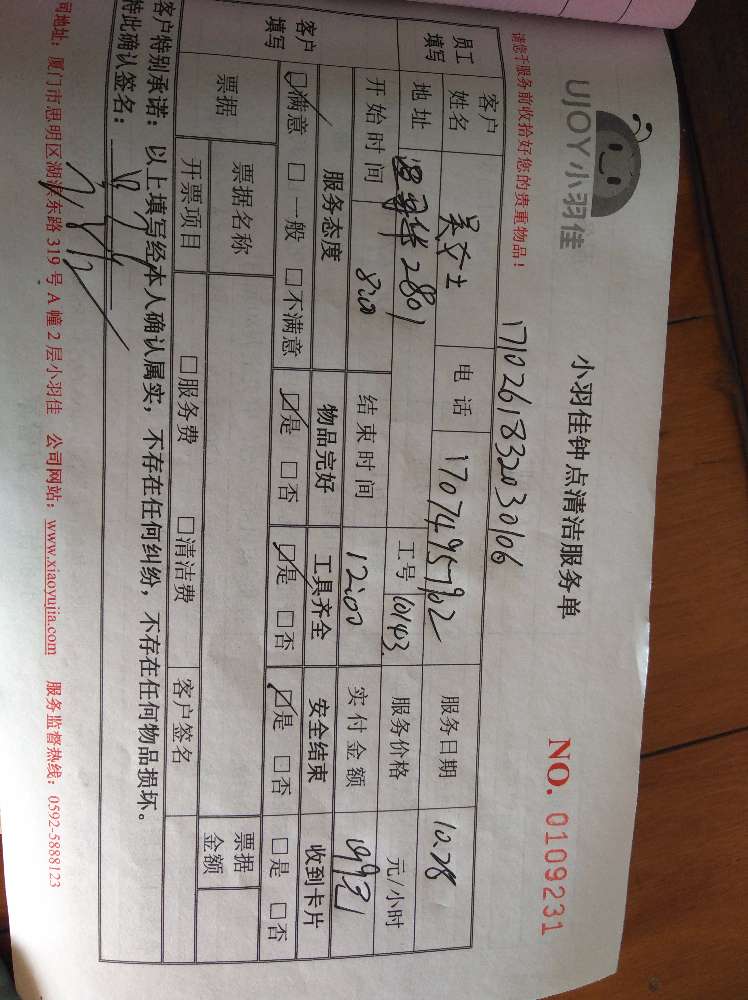 UJOY小羽佳
小羽佳钟点清洁服务单
NO. 0109231
请您于服务前收拾好您的贵重物品！
1710261832030106
员工填写
客户姓名 吴女士 电话 17074957902 服务日期 10.28
地址 2801 工号 10143 服务价格 元/小时
开始时间 8:00 结束时间 12:00 实付金额
客户填写
服务态度 物品完好 工具齐全 安全结束 收到卡片
☑满意 □一般 □不满意 ☑是 □否 ☑是 □否 ☑是 □否 □是 □否
票据 票据名称 票据金额
开票项目 □服务费 □清洁费 客户签名
客户特别承诺：以上填写经本人确认属实，不存在任何纠纷，不存在任何物品损坏。
特此确认签名：
司地址：厦门市思明区湖滨东路 319 号 A 幢 2 层小羽佳 公司网站：www.xiaoyujia.com 服务监督热线：0592-5888123